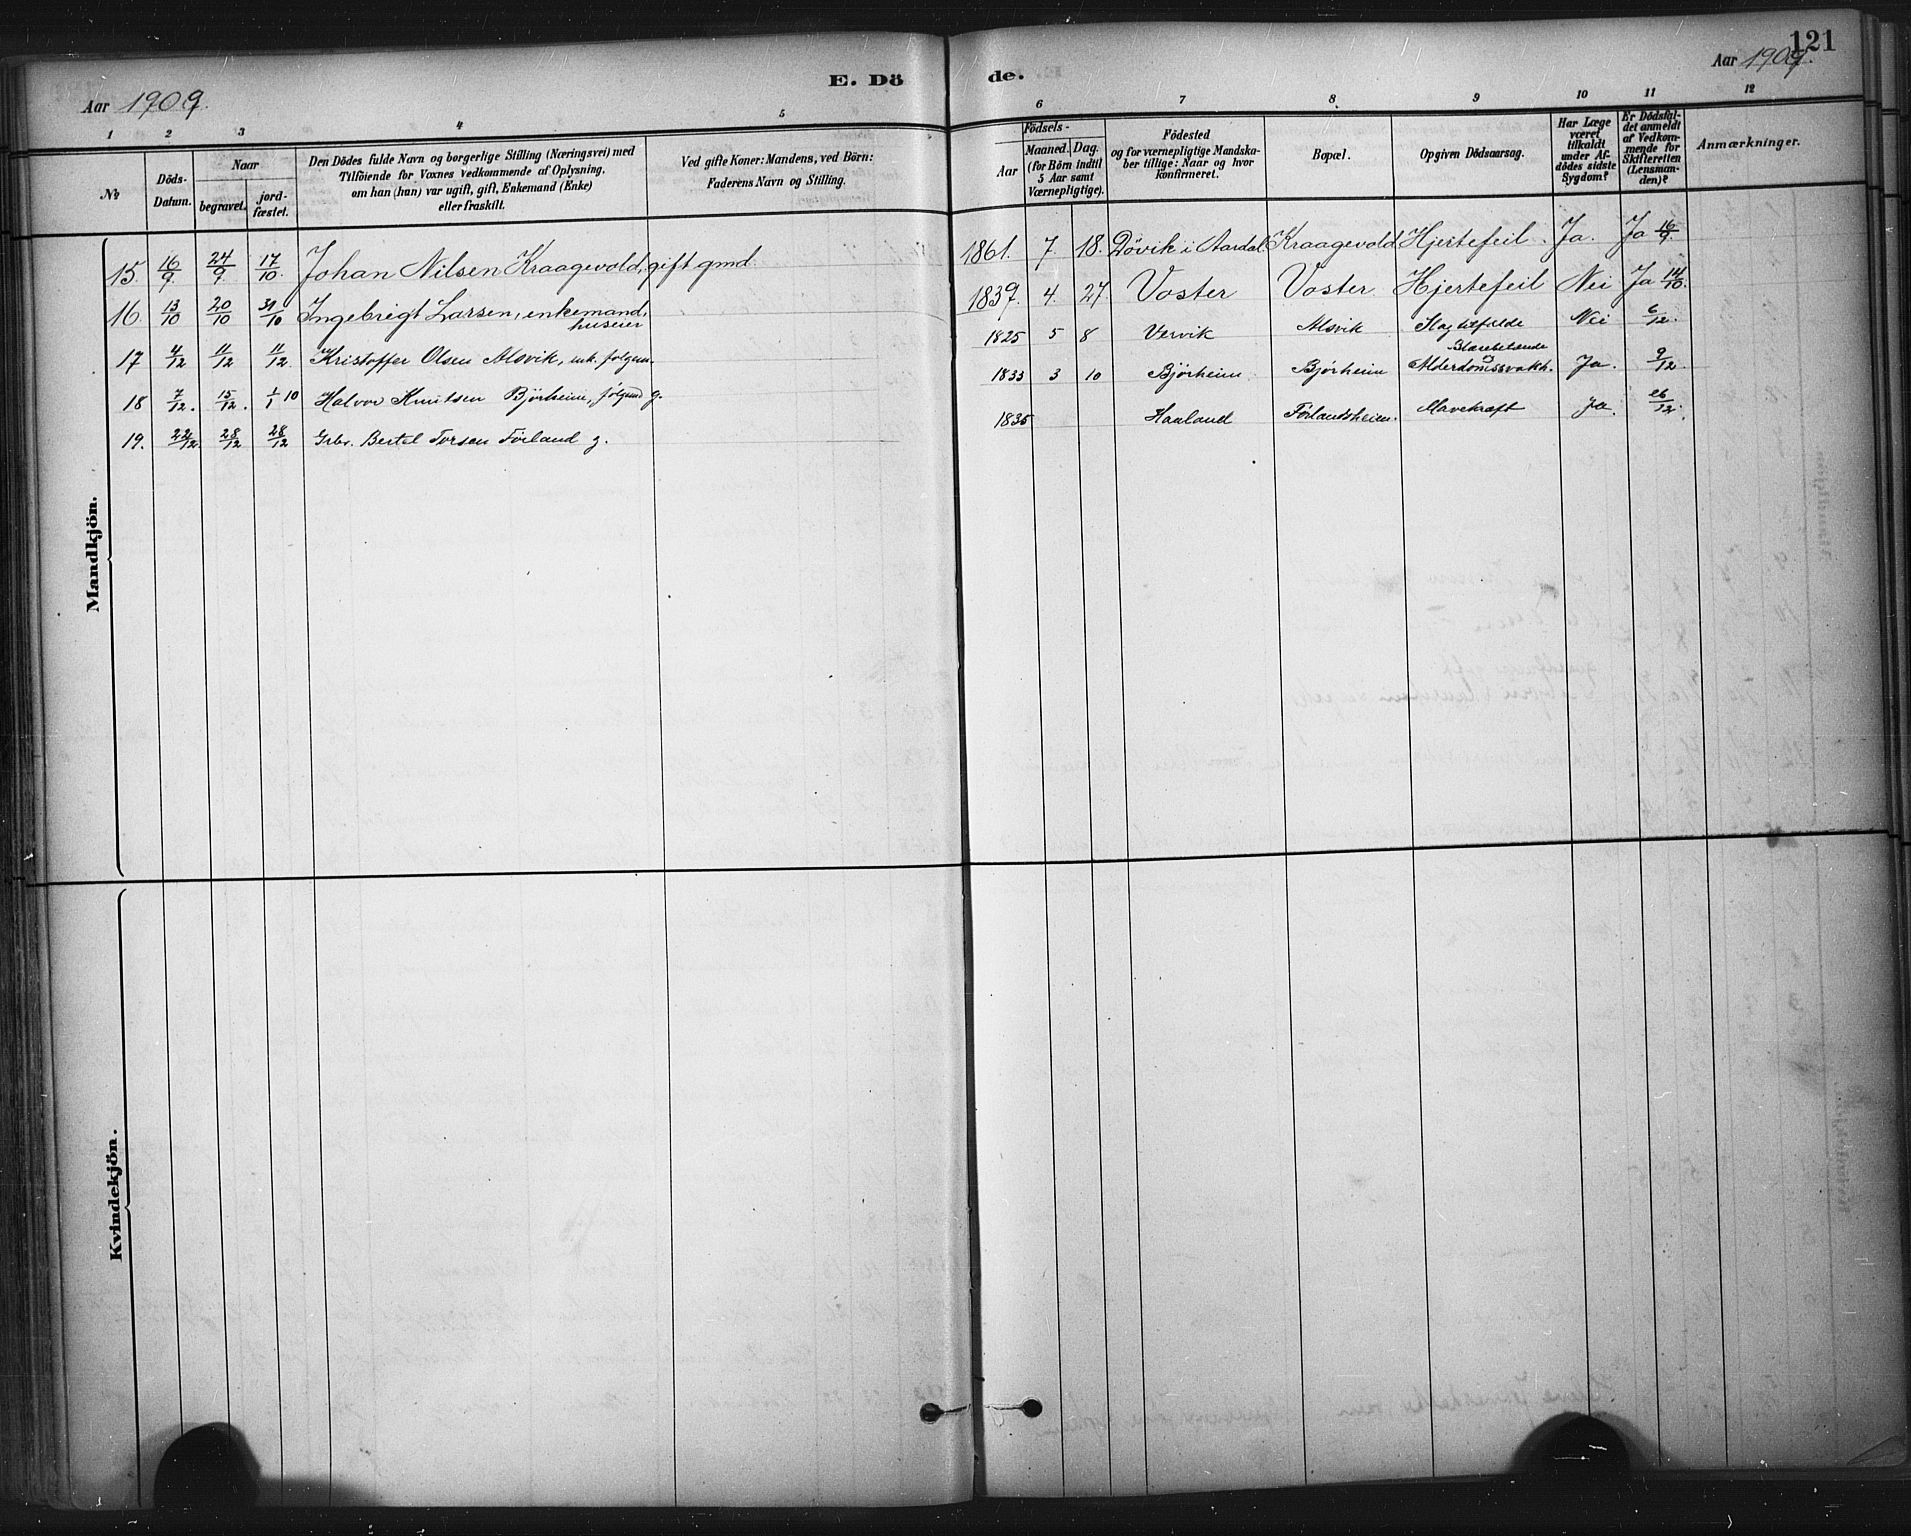 121
E. Dö de.
Aar 1909.
Aar 1909.
1 2 3 4 5 6 7 8 9 10 11 12
№
Döds-Datum.
Naar
begravet.
jord-fæstet.
Den Dödes fulde Navn og borgerlige Stilling (Næringsvei) med
Tilföiende for Voxnes Vedkommende af Oplysning,
om han (hun) var ugift, gift, Enkemand (Enke)
eller fraskilt.
Ved gifte Koner: Mandens, ved Börn:
Faderens Navn og Stilling.
Födsels-
Aar
Maaned. Dag.
(for Börn indtil
5 Aar samt
Værnepligtige).
Födested
og for værnepligtige Mandska-
ber tillige: Naar og hvor
konfirmeret.
Bopæl.
Opgiven Dödsaarsag.
Har Læge
været
tilkaldt
under Af-
dödes sidste
Sygdom?
Er Dödsfal-
det anmeldt
af Vedkom-
mende for
Skifteretten
(Lensman-
den)?
Anmærkninger.
Mandkjön.
15. 16/9 24/9. 17/10. Johan Nilsen Kraagevold, gift gmd. 1861. 7. 18. Døvik i Aardal Kraagevold Hjertefeil. Ja. Ja 16/9.
16. 13/10 20/10 31/10 Ingebrigt Larsen, enkemand, huseier 1839. 4. 27. Voster Voster. Hjertefeil Nei Ja 14/10.
17 4/12 11/12 11/12. Kristoffer Olsen Alsvik, enk. folgem. 1825 5 8 Vervik Alsvik Slagtilfælde Nei 6/12.
18 7/12. 15/12. 1/1 10 Halvor Knutsen Bjørheim, følgemd g. 1833 3 10 Bjørheim Bjørheim Blærebetændelse Alderdomssvakh. Ja. 9/12.
19. 22/12. 28/12 28/12 Grbr. Bertel Torsen Førland g. 1835 Haaland Førlandsheien. Mavekræft Ja. 26/12.
Kvindekjön.